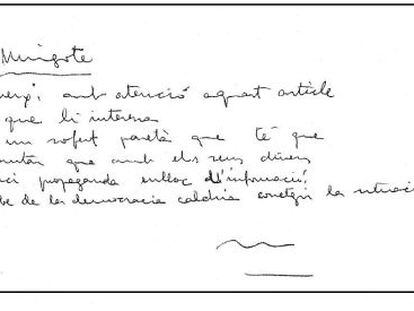 Mingote
amb atenció aquest article
que li interessa
un sofert paretà que té que
que amb els seus diners
propaganda enlloc d'informació.
de la democracia caldria corregir la situació